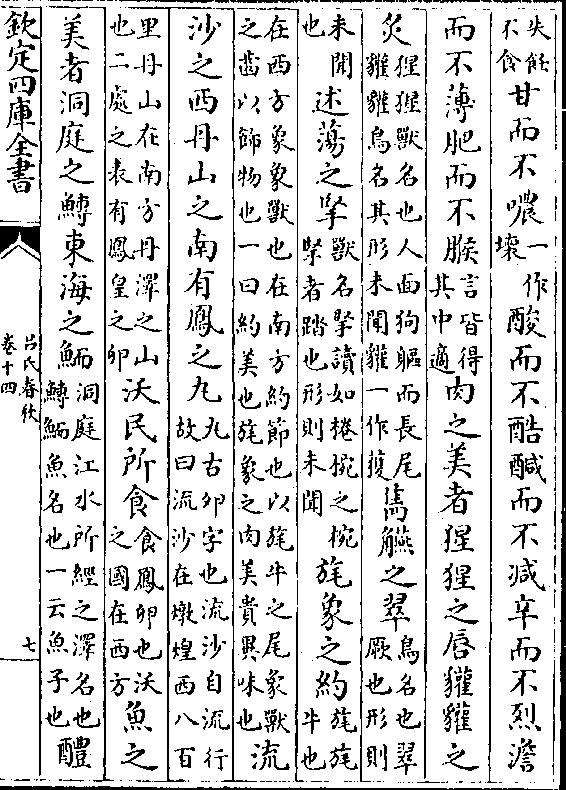 失飪不食甘而不噥一作壞酸而不酷醎而不減辛而不烈澹
而不薄肥而不䐧言皆得其中適肉之美者猩猩之唇獾獾之
炙猩猩獸名也人面狗軀而長尾獾獾鳥名其形未聞獾一作獲雋觾之翠鳥名也翠厥也形則
未聞也述蕩之掔獸名掔讀如棬椀之椀掔者踏也形則未聞旄象之約旄旄牛也
在西方象象獸也在南方約節也以旄牛之尾象獸之齒以飾物也一曰約美也旄象之肉美貴異味也流
沙之西丹山之南有鳳之丸丸古卵字也流沙自流行故曰流沙在燉煌西八百
里丹山在南方丹澤之山也二處之表有鳳皇之卵沃民所食食鳳卵也沃之國在西方魚之
美者洞庭之鱄東海之鮞洞庭江水所經之澤名也鱄鮞魚名也一云魚子也醴
欽定四庫全書
呂氏春秋
卷十四
七